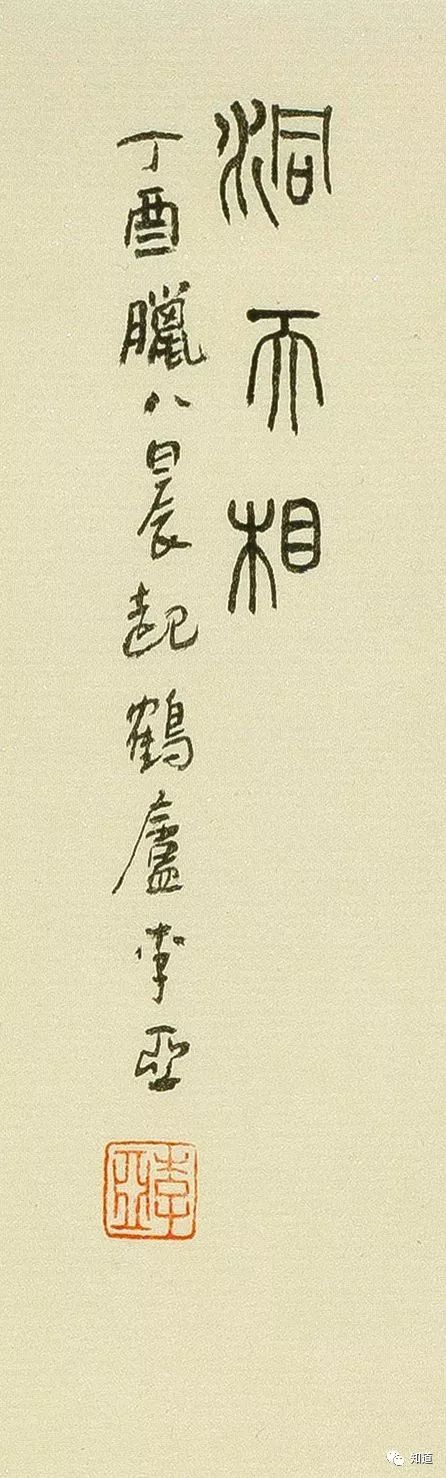 洞天相
丁酉臘八晨起鶴廬李亞
李亞
知道